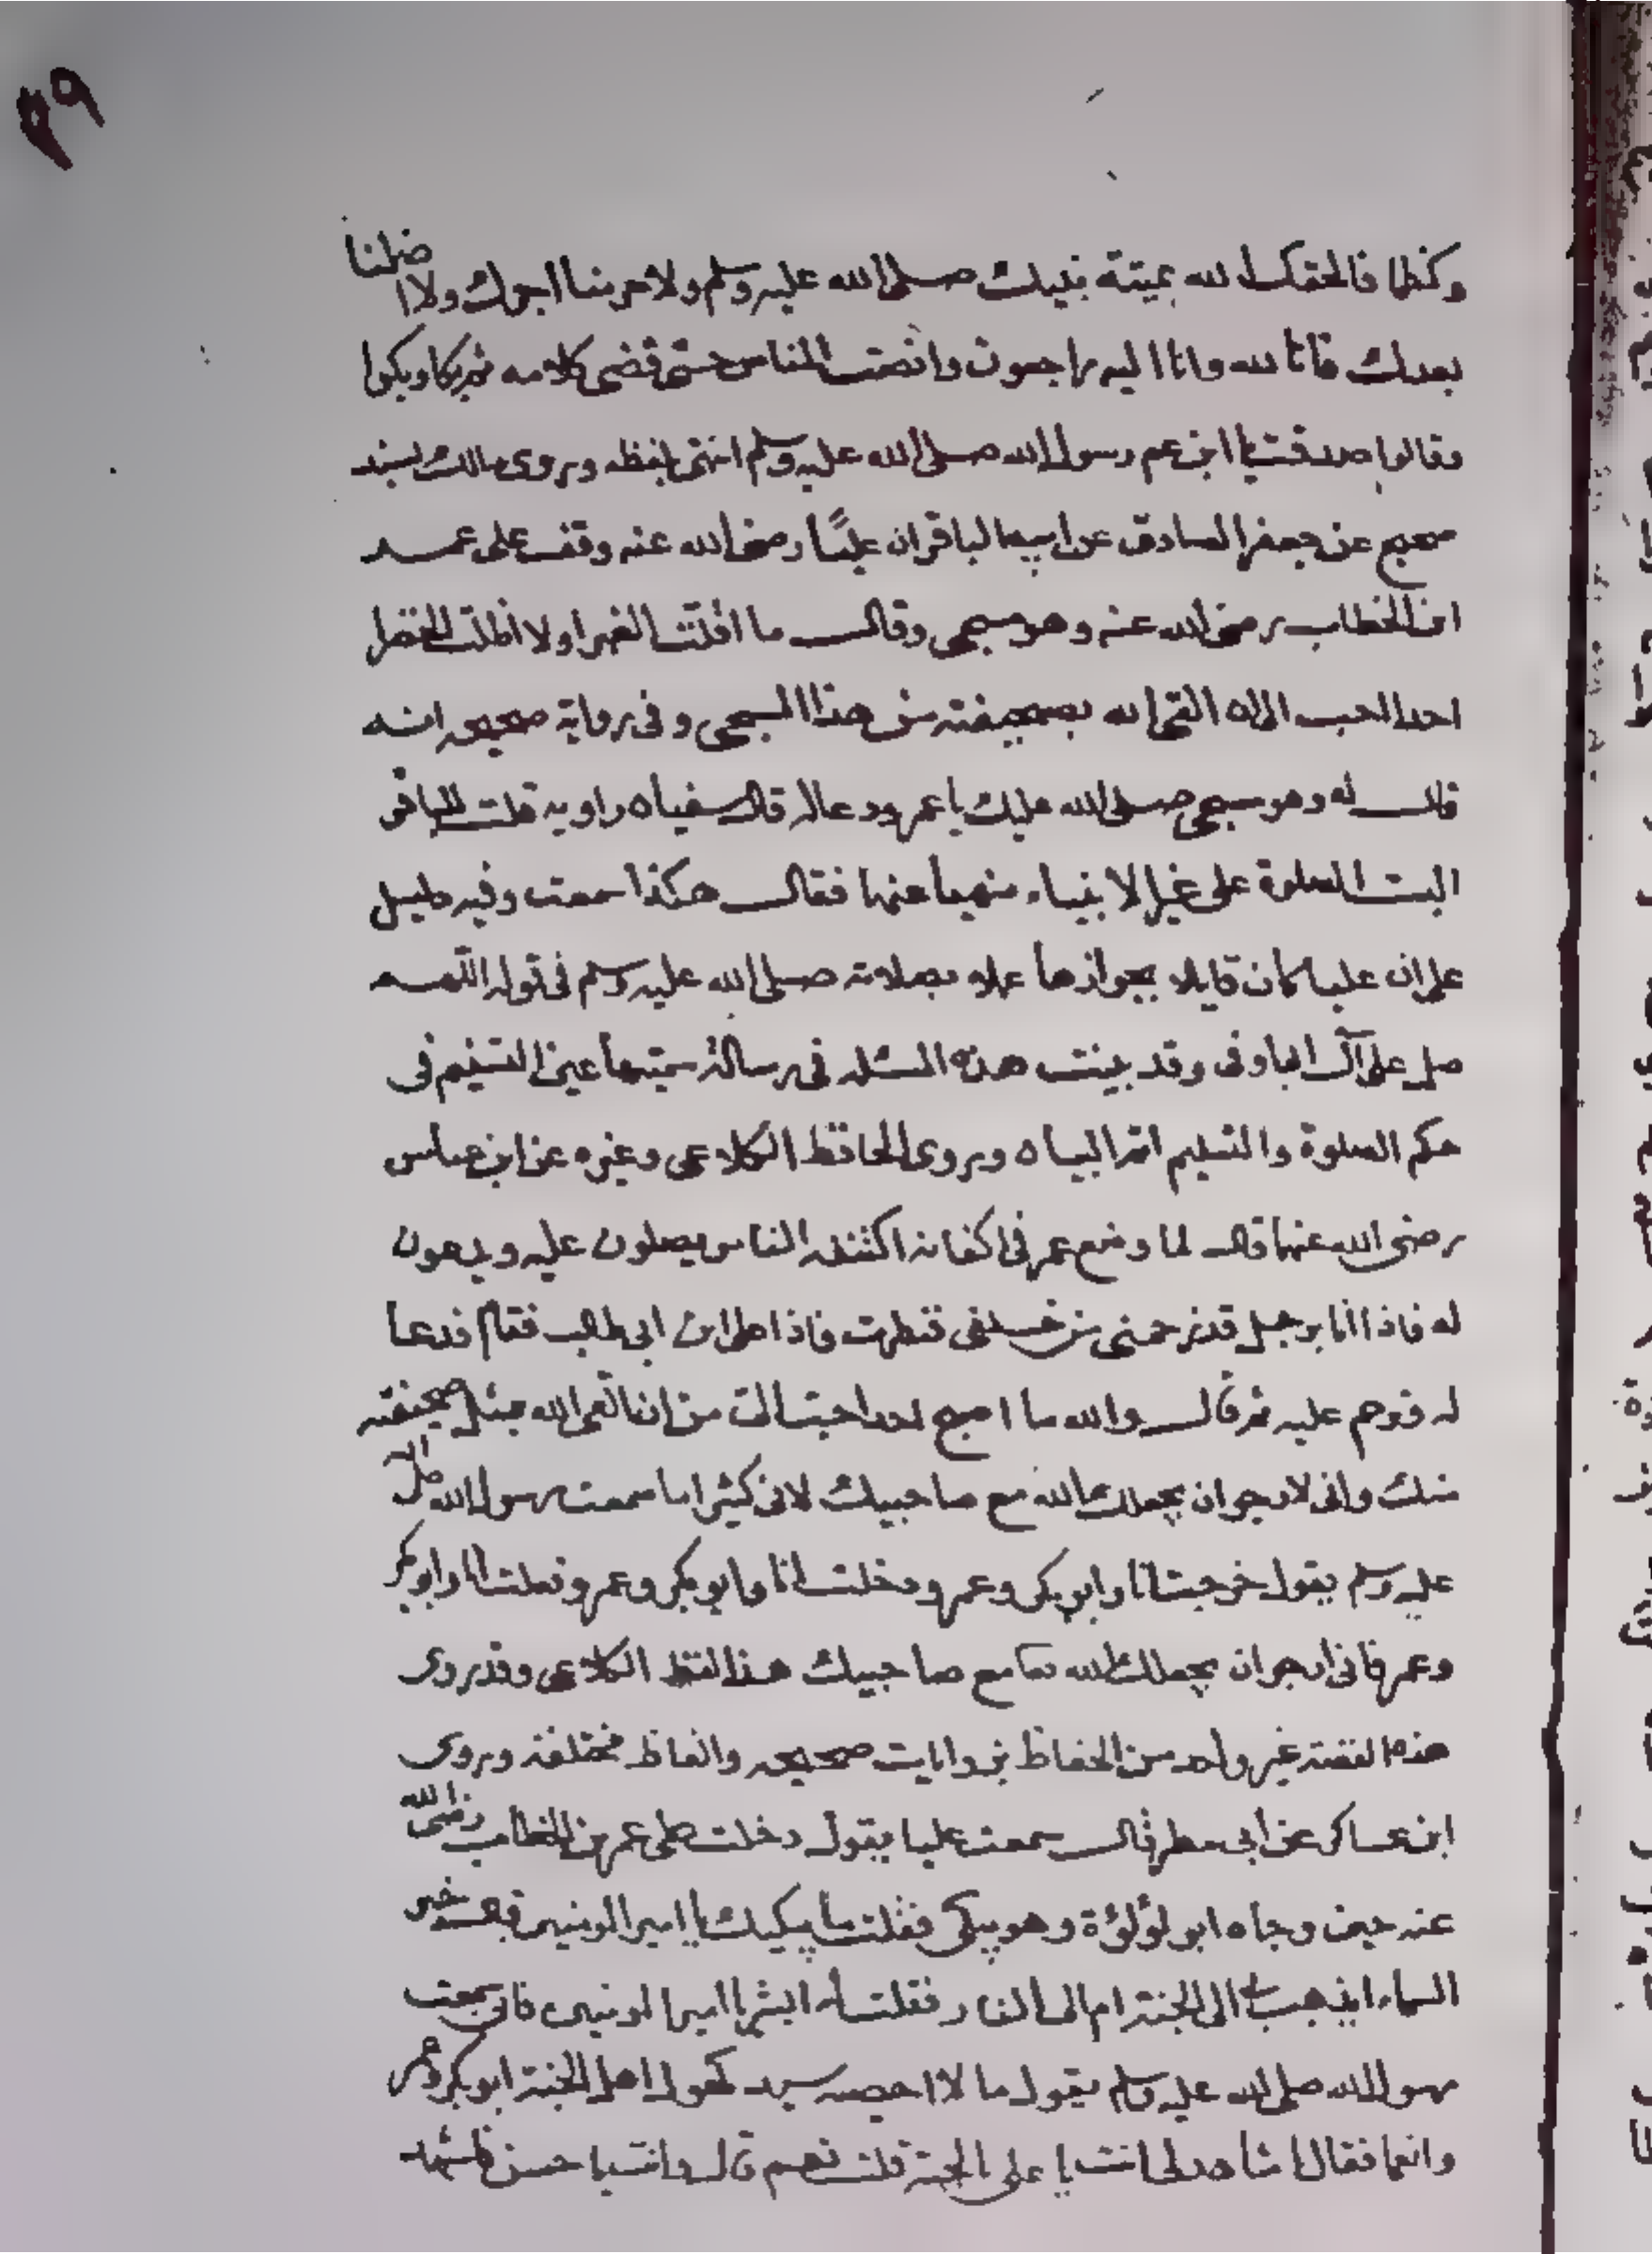 ٣٩
وكنظا فالحقك الله بميتة بنبيك صلى الله عليه وسلم ولا حرمنا اجرك ولا اضلنا
بعدك فانا لله وانا اليه راجعون وانصت الناس حتى قضى كلامه ثم بكا وبكوا
وقالوا صدقت يا ابن عم رسول الله صلى الله عليه وسلم انتهى بلفظه وروى مالك بسند
صحيح عن جعفر الصادق عن ابيه الباقر ان عليًا رضى الله عنه وقف على عمر
ابن الخطاب رضى الله عنه وهو مسجى وقال ما اقلت الغبرا ولا اظلت الخضرا
احدا احب الى ان القى الله بصحيفته من هذا المسجى وفى رواية صحيحه انه
قال له وهو مسجى صلى الله عليك يا عمر ودعا له قال سفيان راويه قلت للباقر
اليست الصلوة على غير الانبياء منهيا عنها فقال هكذا سمعت وفيه دليل
على ان عليا كان قايلا بجوازها عملا بصلاته صلى الله عليه وسلم فى قوله اللهم
صل على آل ابى اوفى وقد بينت هذه المسئله فى رسالة سميتها عين التسنيم فى
حكم الصلوة والتسليم اتم البيان وروى الحافظ الكلاعى وغيره عن ابن عباس
رضى الله عنهما قال لما وضع عمر فى اكفانه اكتنفه الناس يصلون عليه ويدعون
له فاذا انا برجل قد زحمنى من خلفى فنظرت فاذا على ابن ابى طالب فقام فدعا
له وترحم عليه ثم قال والله ما اصبح احد احب الى من ان القى الله بمثل صحيفته
منك وانى لارجو ان يجعلك الله مع صاحبيك لانى كثيرا ما سمعت رسول الله صلى الله
عليه وسلم يقول خرجت انا وابو بكر وعمر ودخلت انا وابو بكر وعمر وفعلت انا وابو بكر
وعمر فانى ارجو ان يجعلك الله تعا مع صاحبيك هذا لفظ الكلاعى وقد روى
هذه القصة غير واحد من الحفاظ بروايات صحيحه والفاظ مختلفة وروى
ابن عساكر عن ابى مطر قال سمعت عليا يقول دخلت على عمر بن الخطاب رضى الله
عنه حين وجاه ابو لؤلؤة وهو يبكى فقلت ما يبكيك يا امير المومنين قال خبر
السماء ايذهب بى الى الجنة ام الى النار فقلت له ابشر يا امير المومنين فانى سمعت
رسول الله صلى الله عليه وسلم يقول ما لا احصيه سيد كهول اهل الجنة ابو بكر وعمر
وانعما فقال اشاهد لى انت يا على بالجنة قلت نعم قال وانت يا حسن فاشهد